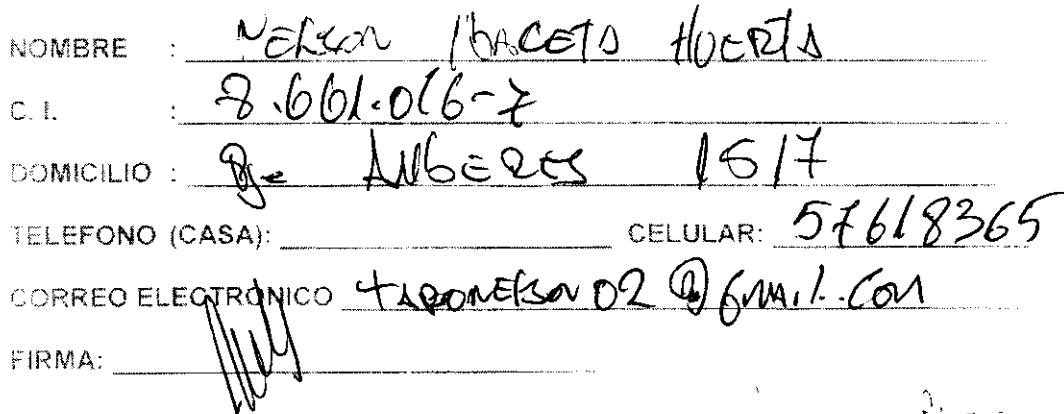 NOMBRE : NELSON IBACETA HUERTA
C. I. : 8.661.016-7
DOMICILIO : Pje AMBERES 1517
TELEFONO (CASA): CELULAR: 57618365
CORREO ELECTRÓNICO TAPONELSON02@GMAIL.COM
FIRMA: